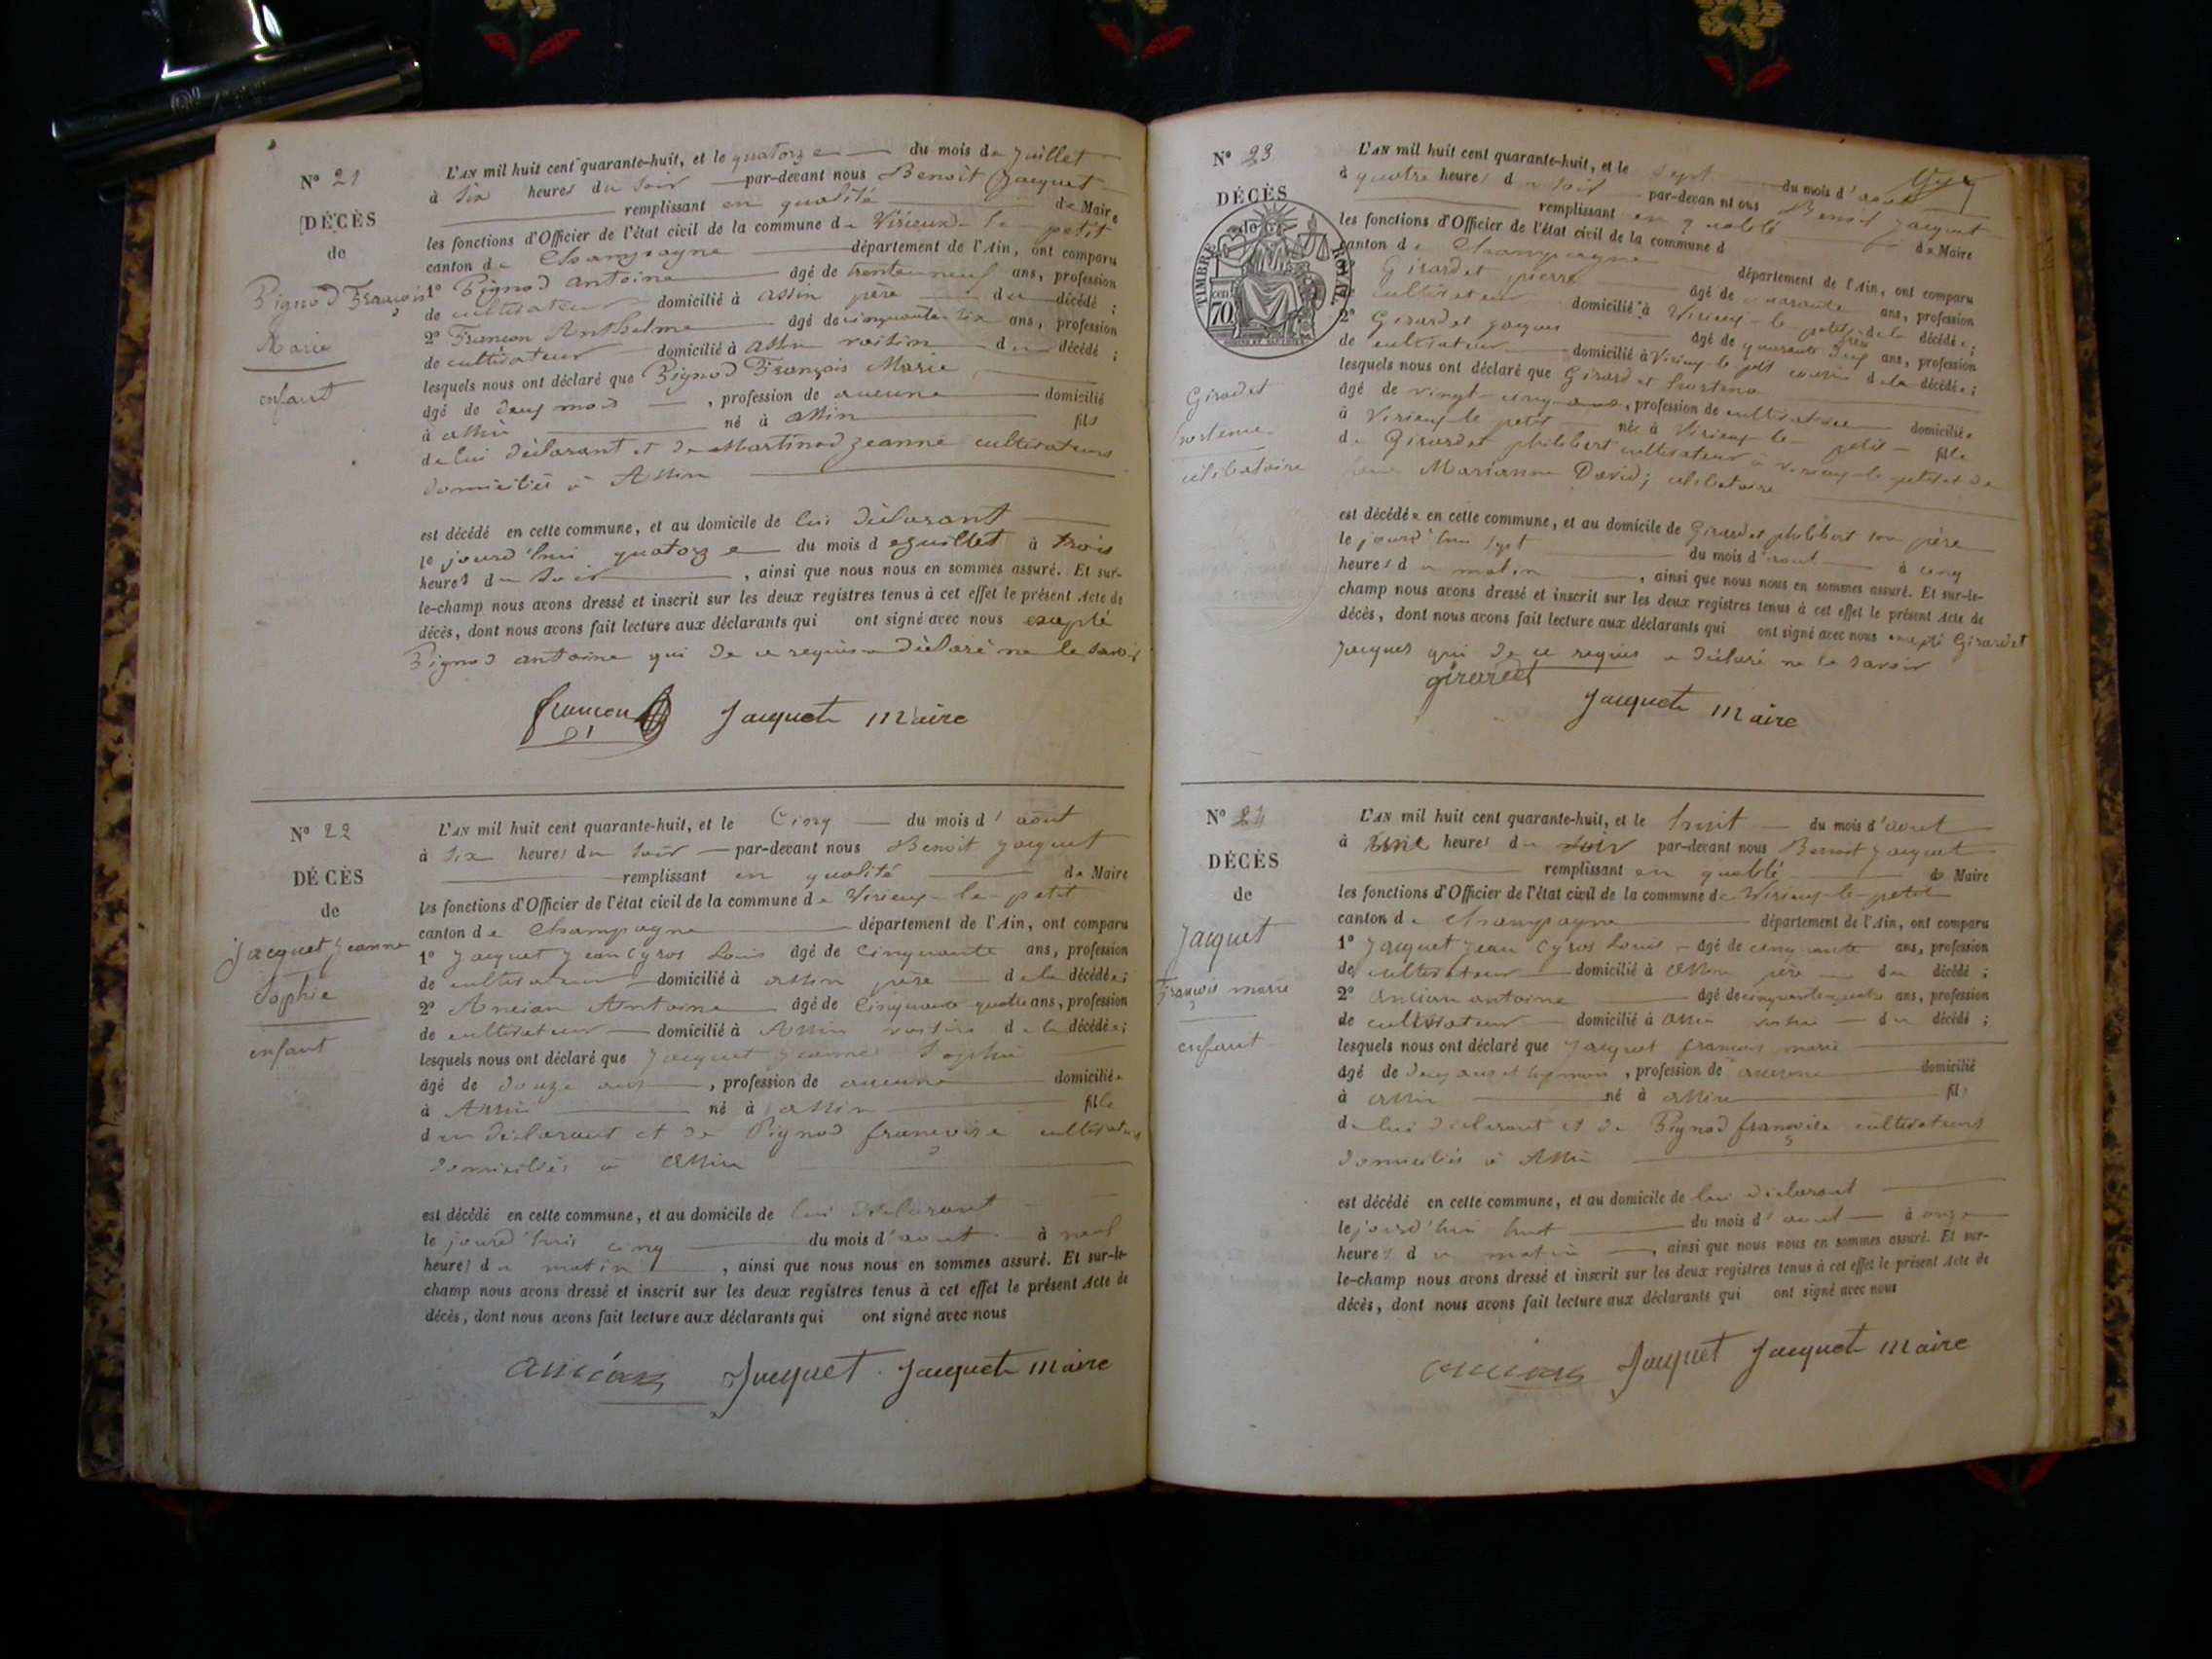 N° 21
DÉCÈS
de
Pignod François
Marie
enfant
L'AN mil huit cent quarante-huit, et le quatorze du mois de Juillet
à Six heures du Soir par-devant nous Benoit Jacquet
remplissant en qualité de Maire
les fonctions d'Officier de l'état civil de la commune de Virieux-le-petit
canton de Champagne département de l'Ain, ont comparu
1° Pignod Antoine âgé de trente neuf ans, profession
de cultivateur domicilié à Assin père du décédé ;
2° Françon Anthelme âgé de cinquante six ans, profession
de cultivateur domicilié à Assin voisin du décédé ;
lesquels nous ont déclaré que Pignod François Marie
âgé de deux mois, profession de aucune domicilié
à Assin né à Assin fils
de lui déclarant et de Martinod Jeanne cultivateurs
domiciliés à Assin
est décédé en cette commune, et au domicile de lui déclarant
le jourd'hui quatorze du mois de juillet à trois
heures du Soir, ainsi que nous nous en sommes assuré. Et sur-
le-champ nous avons dressé et inscrit sur les deux registres tenus à cet effet le présent Acte de
décès, dont nous avons fait lecture aux déclarants qui ont signé avec nous excepté
Pignod antoine qui de ce requis a déclaré ne le savoir
françon Jacquet Maire
N° 22
DÉCÈS
de
Jacquet Jeanne
Sophie
enfant
L'AN mil huit cent quarante-huit, et le Cinq du mois d'août
à Six heures du Soir par-devant nous Benoit Jacquet
remplissant en qualité de Maire
les fonctions d'Officier de l'état civil de la commune de Virieux-le-petit
canton de Champagne département de l'Ain, ont comparu
1° Jacquet Jean Cyros Louis âgé de Cinquante ans, profession
de cultivateur domicilié à Assin père de la décédée ;
2° Ancian Antoine âgé de Cinquante quatre ans, profession
de cultivateur domicilié à Assin voisin de la décédée ;
lesquels nous ont déclaré que Jacquet Jeanne Sophie
âgé de douze ans, profession de aucune domiciliée
à Assin né à Assin fille
du déclarant et de Pignod françoise cultivateurs
domiciliés à Assin
est décédé en cette commune, et au domicile de lui déclarant
le jourd'hui cinq du mois d'aout à neuf
heures du matin, ainsi que nous nous en sommes assuré. Et sur-le-
champ nous avons dressé et inscrit sur les deux registres tenus à cet effet le présent Acte de
décès, dont nous avons fait lecture aux déclarants qui ont signé avec nous
ancian Jacquet Jacquet Maire
N° 23
DÉCÈS
TIMBRE ROYAL
70
Girardet
hortense
célibataire
L'AN mil huit cent quarante-huit, et le sept du mois d'aout
à quatre heures du soir par-devant nous Benoit Jacquet
remplissant en qualité de Maire
les fonctions d'Officier de l'état civil de la commune d
canton de Champagne département de l'Ain, ont comparu
Girardet pierre âgé de quarante ans, profession
cultivateur domicilié à Virieux-le petit de la décédée ;
2° Girardet jacques âgé de quarante deux ans, profession
de cultivateur domicilié à Virieux-le petit cousin de la décédée ;
lesquels nous ont déclaré que Girardet hortense
âgé de vingt-cinq ans, profession de cultivatrice domiciliée
à Virieux le petit née à Virieux-le-petit fille
de Girardet philibert cultivateur à Virieux-le-petit et de
Marianne David; célibataire
est décédée en cette commune, et au domicile de Girardet philibert son père
le jourd'hui sept du mois d'aout à cinq
heures du matin, ainsi que nous nous en sommes assuré. Et sur-le-
champ nous avons dressé et inscrit sur les deux registres tenus à cet effet le présent Acte de
décès, dont nous avons fait lecture aux déclarants qui ont signé avec nous excepté Girardet
Jacques qui de ce requis a déclaré ne le savoir
girardet Jacquet Maire
N° 24
DÉCÈS
de
Jacquet
François marie
enfant
L'AN mil huit cent quarante-huit, et le huit du mois d'aout
à heures du soir par-devant nous Benoit Jacquet
remplissant en qualité de Maire
les fonctions d'Officier de l'état civil de la commune de Virieux-le-petit
canton de Champagne département de l'Ain, ont comparu
1° Jacquet Jean Cyros Louis âgé de cinquante ans, profession
de cultivateur domicilié à Assin père du décédé ;
2° ancian antoine âgé de cinquante quatre ans, profession
de cultivateur domicilié à Assin voisin du décédé ;
lesquels nous ont déclaré que Jacquet françois marie
âgé de deux ans et, profession de aucune domicilié
à Assin né à Assin fils
de lui déclarant et de Pignod françoise cultivateurs
domiciliés à Assin
est décédé en cette commune, et au domicile de lui déclarant
le jourd'hui huit du mois d'aout à onze
heures du matin, ainsi que nous nous en sommes assuré. Et sur-
le-champ nous avons dressé et inscrit sur les deux registres tenus à cet effet le présent Acte de
décès, dont nous avons fait lecture aux déclarants qui ont signé avec nous
ancian Jacquet Jacquet Maire